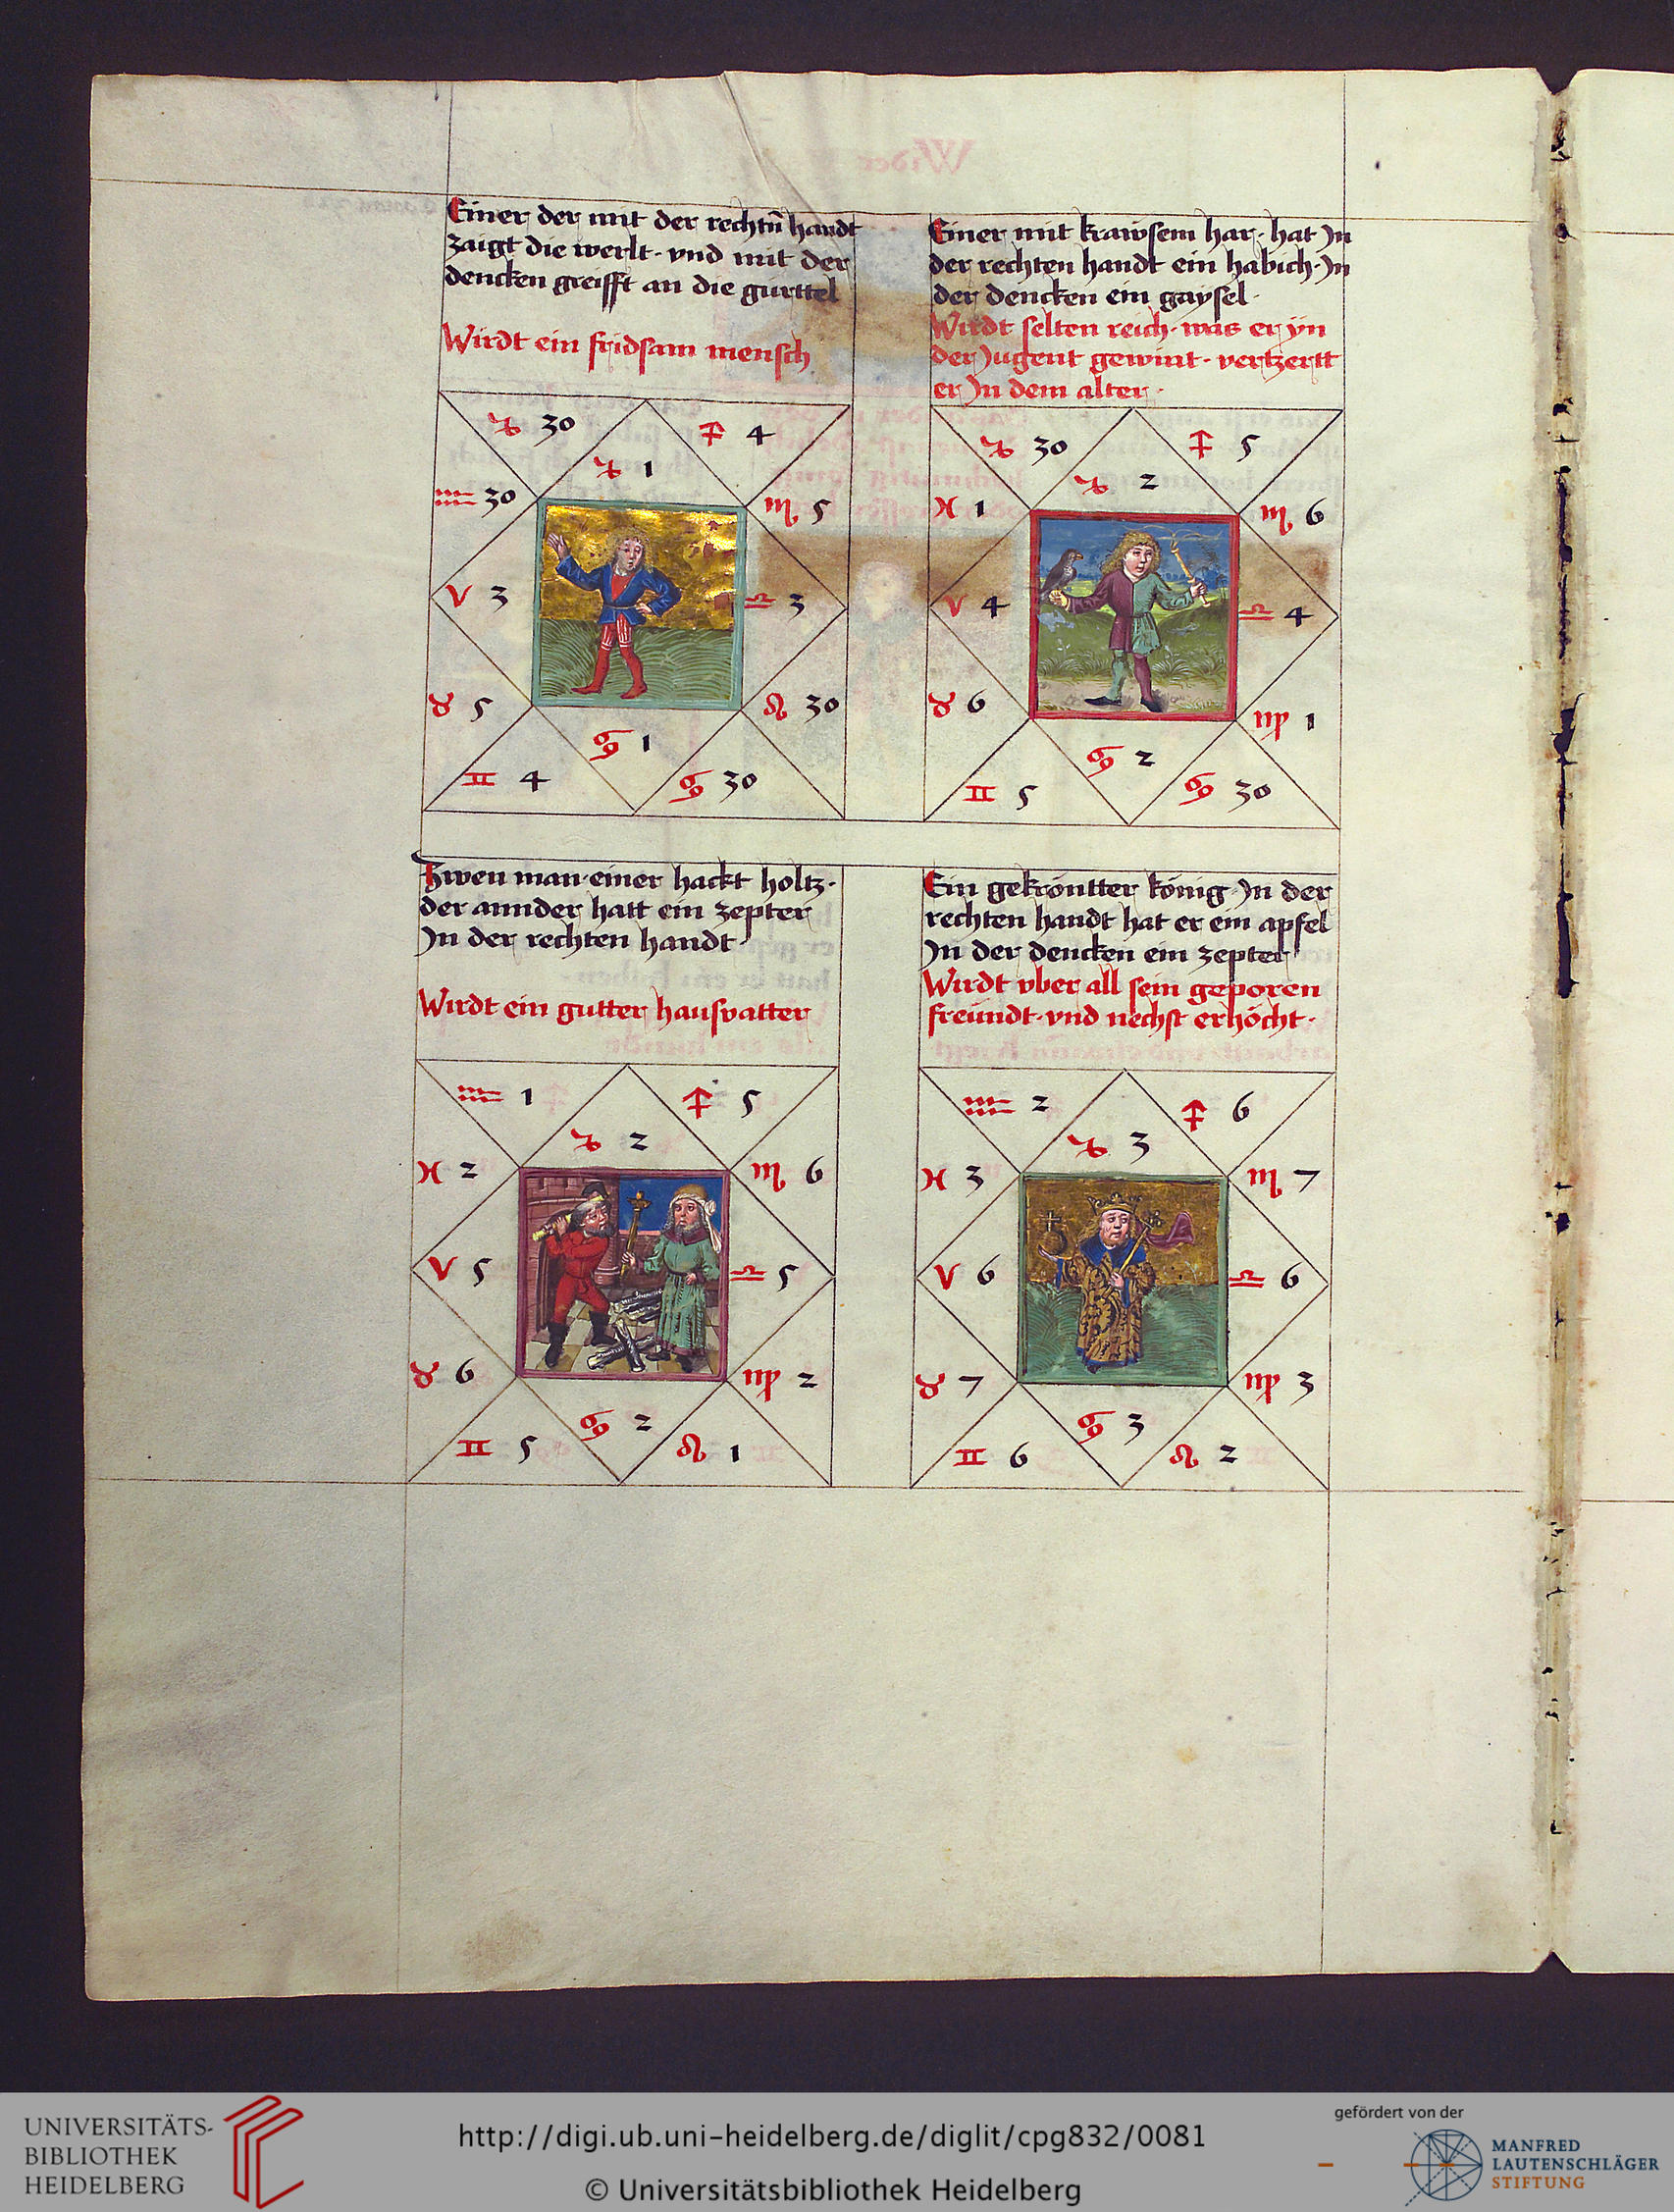 Einer der mit der rechtn̄ handt
zaigt die werlt · vnd mit der
dencken greifft an die gurttel
Wirdt ein fridsam mensch
♑ 30
♐ 4
♑ 1
♒ 30
♏ 5
♈ 3
♎ 3
♉ 5
♌ 30
♋ 1
♊ 4
♋ 30
Einer mit krawsem har · hat Jn
der rechten handt ein habich · Jn
der dencken ein gaysel ·
Wirdt selten reich · was er yn
der Jugent gewint · vertzertt
er Jn dem alter ·
♑ 30
♐ 5
♑ 2
♓ 1
♏ 6
♈ 4
♎ 4
♉ 6
♍ 1
♋ 2
♊ 5
♋ 30
Zwen man · einer hackt holtz ·
der annder hatt ein zepter
Jn der rechten handt ·
Wirdt ein gutter hausvatter
♒ 1
♐ 5
♑ 2
♓ 2
♏ 6
♈ 5
♎ 5
♉ 6
♍ 2
♋ 2
♊ 5
♌ 1
Ein gekröntter könig · Jn der
rechten handt hat er ein apfel
Jn der dencken ein zepter
Wirdt vber all sein geporen
freündt · vnd nechst erhöcht ·
♒ 2
♐ 6
♑ 3
♓ 3
♏ 7
♈ 6
♎ 6
♉ 7
♍ 3
♋ 3
♊ 6
♌ 2
UNIVERSITÄTS-
BIBLIOTHEK
HEIDELBERG
http://digi.ub.uni-heidelberg.de/diglit/cpg832/0081
© Universitätsbibliothek Heidelberg
gefördert von der
MANFRED
LAUTENSCHLÄGER
STIFTUNG